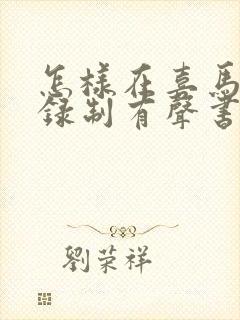 怎樣在喜馬
錄制有聲書
劉荣祥